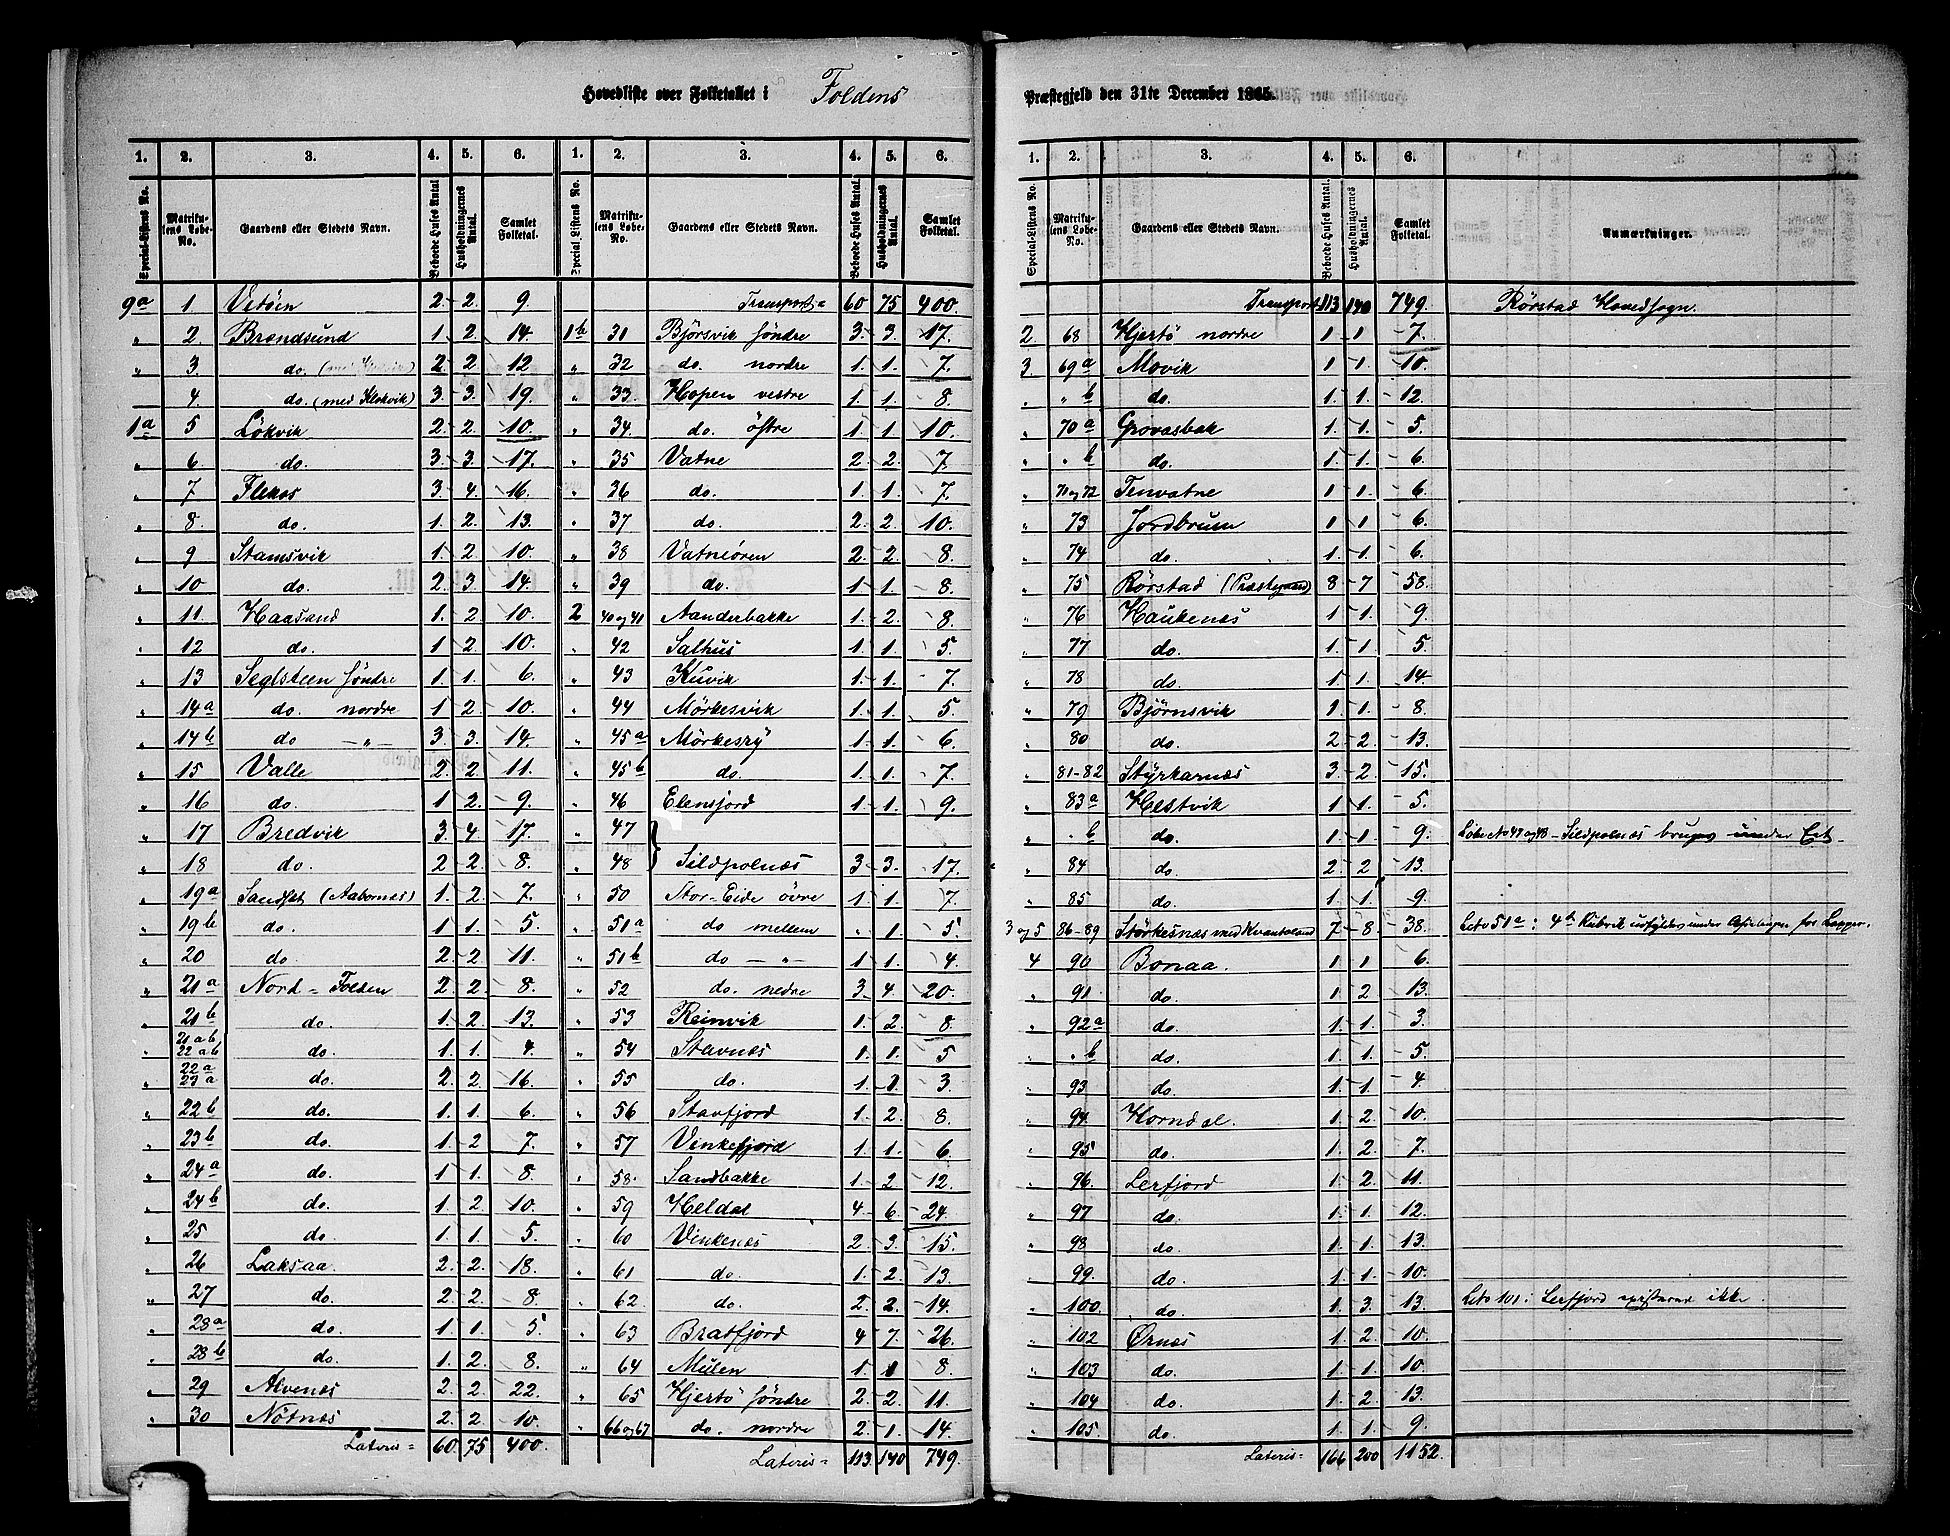 Hovedliste over Folketallet i Foldens Præstegjeld den 31te December 1865.
1. 2. 3. 4. 5. 6. 1. 2. 3. 4. 5. 6.
Special-Listens No. Matrikulens Løbe-No. Gaardens eller Stedets Navn. Beboede Huses Antal Husholdningernes Antal. Samlet Folketal. Special-Listens No. Matrikulens Løbe-No. Gaardens eller Stedets Navn. Beboede Huses Antal. Husholdningernes Antal. Samlet Folketal.
9a 1 Vetöen 2 2. 9.
" 2. Brændsund 1. 2 14.
" 3. do. 2. 2. 12
" 4. do. (med Klokvik) 3. 3. 19.
1a 5 Lökvik 2. 2. 10.
" 6 do. 3. 3. 17.
" 7 Flekæs 3. 4. 16.
" 8. do. 1. 2. 13.
" 9 Stamsvik 1. 2. 10.
" 10 do. 2. 3. 14.
" 11 Haasand 1. 2 10.
" 12 do. 1 2. 10.
" 13 Seglsteen söndre 1. 1. 6.
" 14a do. nordre 1 2. 10.
" 14b do — " — 3. 3. 14.
" 15 Valle 2. 2. 11.
" 16 do. 1 2. 9.
" 17 Bredvik 3. 4. 17.
" 18 do. 2 2. 8.
" 19a Sandset (Aabornes) 1. 2 7.
" 19b do. 1 1. 5.
" 20 do 2. 2. 11.
" 21a Nord-Folden 2. 2. 8.
" 21b do. 1. 2 13.
" 21ab 22ab do. 1. 1. 4.
" 22a 23a do. 2. 2. 16.
" 22b do. 1. 1. 6.
" 23b do. 1. 2 7.
" 24a do. 1 1. 8.
" 24b do. 1. 2 10.
" 25 do. 1. 1. 5.
" 26 Laksaa. 2. 2. 18.
" 27 do. 2. 2. 8.
" 28a do. 1. 1. 5.
" 28b do. 1. 2. 8.
" 29 Alvenæs 2. 2. 22.
" 30 Nötnæs 2. 2. 10.
Lateris = 60. 75 400.
Transport = 60 75 400.
1b 31 Björsvik söndre 3. 3. 17.
" 32 do. nordre 1. 1. 7.
" 33 Hopen vestre 1. 1. 8.
" 34. do. östre 1. 1. 10.
" 35 Vatne 2. 2. 7.
" 36 do. 1. 1. 7.
" 37 do. 2. 2. 10.
" 38 Vatneören 2. 2. 8.
" 39 do. 1. 1. 8.
2 40 og 41 Aanderbakke 1. 2. 8.
" 42 Salhus 1. 1. 5.
" 43 Kuvik 1. 1. 7.
" 44 Mörkesvik 1. 1. 5.
" 45a Mörkesry 1. 1. 6.
" 45b do. 1. 1. 7.
" 46 Elensfjord 1. 1. 9.
" 47
" 48 } Sildpolnæs 3. 3. 17.
" 50 Stor-Eide övre 1. 1. 7.
" 51a do mellem " 1. 5.
" 51b do — " — 1. 1. 4.
" 52 do. nedre 3. 4. 20.
" 53 Reinvik 1. 2. 8.
" 54 Stavnæs 1. 1. 5
" 55 do. 1. 1. 3.
" 56 Stavfjord 1. 2. 8.
" 57 Vinkefjord 1. 1. 6.
" 58. Sandbakke 1. 2. 12.
" 59 Heldal 4. 6. 24.
" 60 Vinkenæs 2. 3. 15.
" 61 do. 1. 2. 13.
" 62. do. 2. 2. 14.
" 63 Bratfjord 4. 7. 26.
" 64 Mulen 1. 1 8.
" 65 Hjertö söndre 2. 2. 11.
" 66 og 67 do. nordre 2. 1. 14.
Lateris = 113. 140 749.
1. 2. 3. 4. 5. 6.
Special-Listens No. Matrikulens Løbe-No. Gaardens eller Stedets Navn. Beboede Huses Antal. Husholdningernes Antal. Samlet Folketal. Anmærkninger.
Transport 113 140 749. Rörstad Hovedsogn.
2. 68 Hjertö nordre 1 1 7.
3. 69a Movik 1 1. 10.
" " b do. 1. 1. 12.
" 70a Grovasbak 1. 1. 5.
" " b do. 1. 1. 6.
" 71 og 72 Tenvatne 1 1. 6.
" 73 Jordbrum 1 1. 6.
" 74 do. 1. 1. 6.
" 75 Rörstad (Præstegaard) 8 7 58.
" 76 Haukenæs 1. 1. 9.
" 77 do. 1. 1. 5.
" 78 do. 1. 1. 14.
" 79 Björnsvik 1. 1. 8.
" 80 do. 2 2. 13.
" 81-82 Styrkarnæs 3. 2. 15.
" 83a Hestvik 1 1. 5.
" " b do. 1. 1. 9. Löbe No 47 og 48 - Sildpolnæs bruges under Et.
" 84 do. 2. 2 13.
" 85 do. 1. 1. 9.
3 og 5 86-89 Störkesnæs med Kvantoland 7 8. 38. Litr 51a: 4de Rubrik udfyldes under
4 90 Bonaa. 1 1 6.
" 91 do. 1. 2 13.
" 92a do. 1. 1. 3.
" " b do. 1. 1. 5.
" 93 do. 1. 1. 4
" 94 Horndal. 1. 2. 10.
" 95 do. 1. 2. 7.
" 96. Lerfjord 1. 2. 11.
" 97 do. 1. 1. 12.
" 98 do. 1. 1. 13.
" 99. do. 1. 1. 10.
" 100. do. 1. 3. 13. Litr 101: Lerfjord existerer ikke.
" 102 Örnæs 1. 2. 10.
" 103 do. 1. 1. 10.
" 104 do. 1. 2. 13.
" 105. do. 1. 1. 9.
Lateris = 166 200 1152.